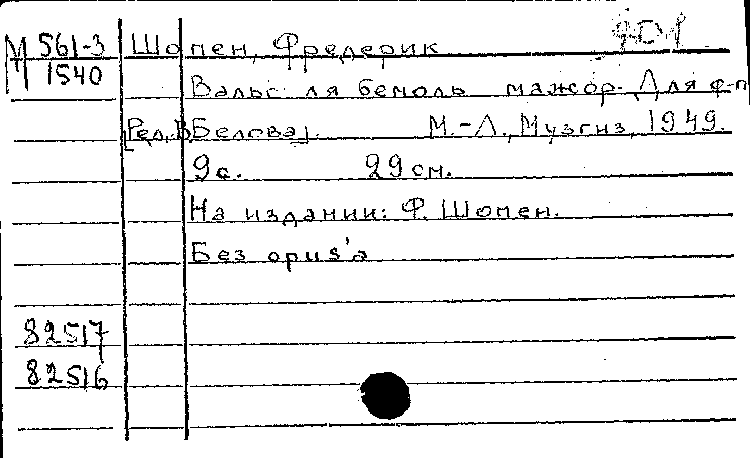 М 561-3 Шопен, Фредерик
1540
Вальс ля бемоль мажор. Для ф-п
[Ред. В. Белова].  М.-Л., Музгиз, 1949.
9с.  29 см.
На издании: Ф. Шопен.
Без opus'a
82517
82516